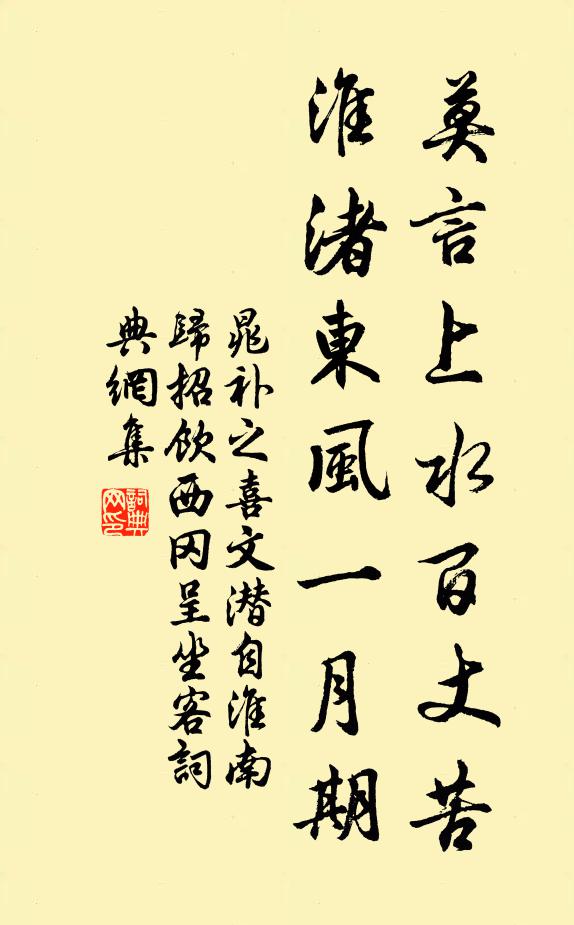 莫言上水百丈苦
淮渚東風一月期
晁补之喜文潜自淮南
歸招飲西冈呈坐客詞
典網集
詞典网印